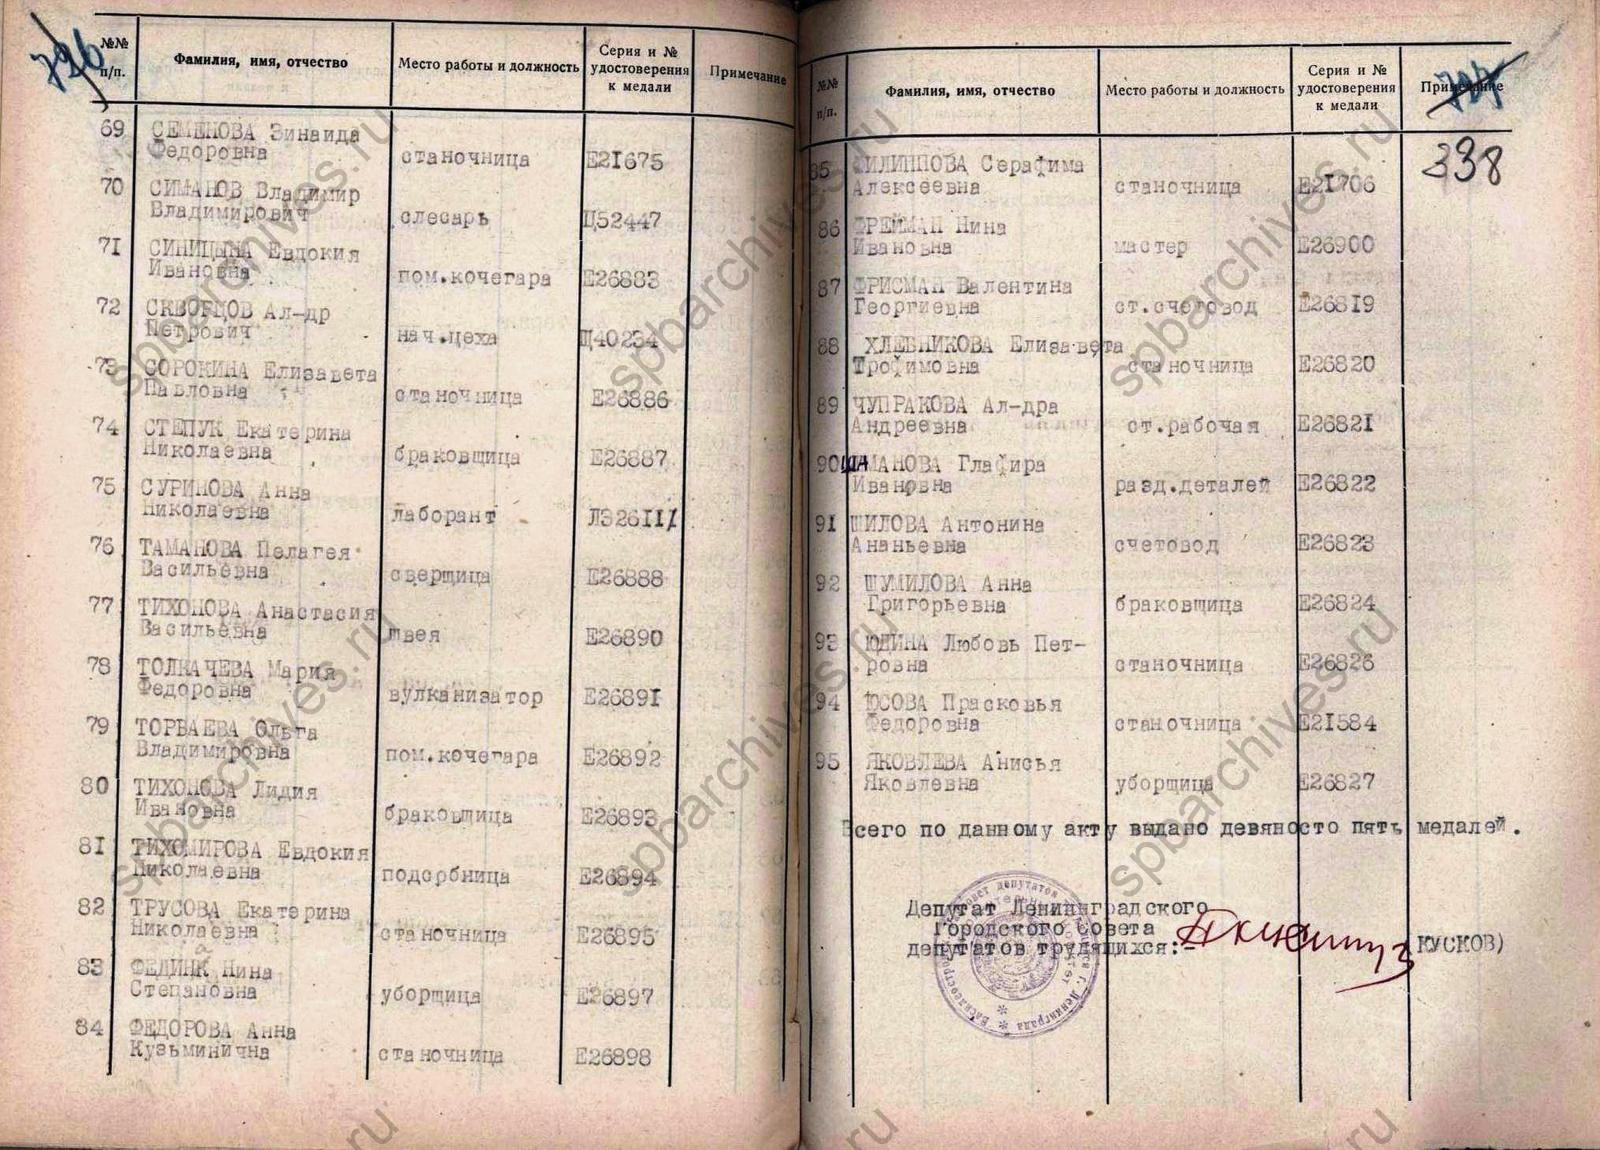 726
№№ п/п. Фамилия, имя, отчество Место работы и должность Серия и № удостоверения к медали Примечание
69 СЕМЕНОВА Зинаида
Федоровна станочница Е21675
70 СИМАНОВ Владимир
Владимирович слесарь Ц52447
71 СИНИЦЫНА Евдокия
Ивановна пом.кочегара Е26883
72 СКВОРЦОВ Ал-др
Петрович нач.цеха Щ40234
73 СОРОКИНА Елизавета
Павловна станочница Е26886
74 СТЕПУК Екатерина
Николаевна браковщица Е26887
75 СУРИНОВА Анна
Николаевна лаборант ЛЭ26111
76 ТАМАНОВА Пелагея
Васильевна сверщица Е26888
77 ТИХОНОВА Анастасия
Васильевна швея Е26890
78 ТОЛКАЧЕВА Мария
Федоровна вулканизатор Е26891
79 ТОРБАЕВА Ольга
Владимировна пом.кочегара Е26892
80 ТИХОНОВА Лидия
Ивановна браковщица Е26893
81 ТИХОМИРОВА Евдокия
Николаевна подсобница Е26894
82 ТРУСОВА Екатерина
Николаевна станочница Е26895
83 Нина
Степановна уборщица Е26897
84 ФЕДОРОВА Анна
Кузьминична станочница Е26898
№№ п/п. Фамилия, имя, отчество Место работы и должность Серия и № удостоверения к медали Примечание
338
85 ФИЛИППОВА Серафима
Алексеевна станочница Е21706
86 ФРЕЙМАН Нина
Ивановна мастер Е26900
87 ФРИСМАН Валентина
Георгиевна ст.счетовод Е26819
88 ХЛЕБНИКОВА Елизавета
Трофимовна станочница Е26820
89 ЧУПРАКОВА Ал-дра
Андреевна ст.рабочая Е26821
90 ШАМАНОВА Глафира
Ивановна разд.деталей Е26822
91 ШИЛОВА Антонина
Ананьевна счетовод Е26823
92 ШУМИЛОВА Анна
Григорьевна браковщица Е26824
93 ЮДИНА Любовь Пет-
ровна станочница Е26826
94 ЮСОВА Прасковья
Федоровна станочница Е21584
95 ЯКОВЛЕВА Анисья
Яковлевна уборщица Е26827
Всего по данному акту выдано девяносто пять медалей.
Депутат Ленинградского
Городского Совета
депутатов трудящихся:- КУСКОВ)
spbarchives.ru